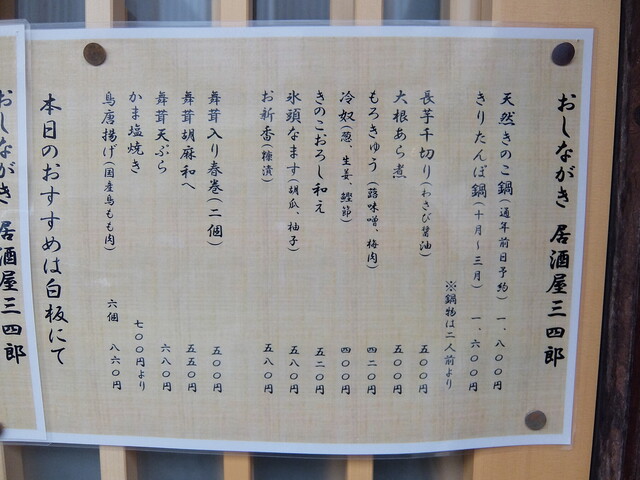 おしながき 居酒屋三四郎
天然きのこ鍋(通年前日予約) 一、八〇〇円
きりたんぽ鍋(十月～三月) 一、六〇〇円
※鍋物は二人前より
長芋千切り(わさび醤油) 五〇〇円
大根あら煮 五〇〇円
もろきゅう(蕗味噌、梅肉) 四二〇円
冷奴(葱、生姜、鰹節) 四〇〇円
きのこおろし和え 五二〇円
氷頭なます(胡瓜、柚子) 五八〇円
お新香(糠漬) 五八〇円
舞茸入り春巻(二個) 五〇〇円
舞茸胡麻和へ 五五〇円
舞茸天ぷら 六八〇円
かま塩焼き 七〇〇円より
鳥唐揚げ(国産鳥もも肉) 六個 八六〇円
本日のおすすめは白板にて
おしながき 居酒屋三四郎